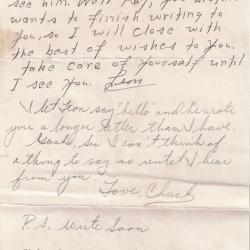 see him. Well
wants to finish writing to
you, so I will close with
the best of wishes to you.
take care of yourself until
I see you. Leon
I let Leon say "hello" and he wrote
you a longer letter than I have.
Gosh, but I can't think of
a thing to say so until I hear
from you.
Love, Chuck
P.S. Write Soon